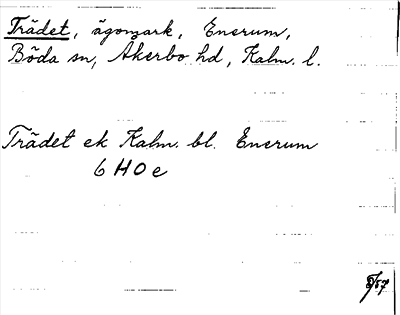 Trädet, ägomark, Enerum,
Böda sn, Åkerbo hd, Kalm. l.
Trädet ek Kalm. bl. Enerum
6 H 0 e